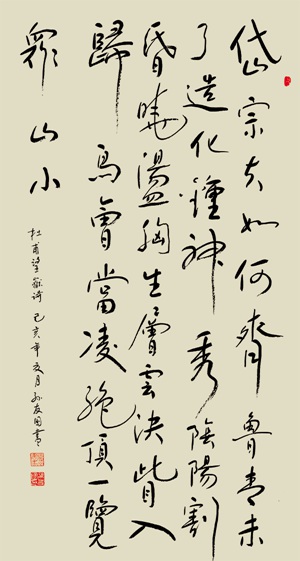 岱宗夫如何齊魯青未
了造化鍾神秀陰陽割
昏曉盪胸生層雲決眥入
歸鳥會當凌絕頂一覽
眾山小
杜甫望嶽詩 己亥年夏月